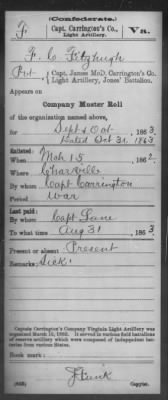 (Confederate.)
F. Capt. Carrington's Co., Va.
Light Artillery.
F. C. Fitzhugh
Pvt, Capt. James McD. Carrington's Co.,
Light Artillery, Jones' Battalion.
Appears on
Company Muster Roll
of the organization named above,
for Sept & Oct, 1863.
dated Oct 31, 1863
Enlisted:
When Mch 15, 1862.
Where Charlville
By whom Capt Carrington
Period War
Last paid:
By whom Capt Lane
To what time Aug 31, 1863
Present or absent Present
Remarks: Sick
Captain Carrington's Company Virginia Light Artillery was
organized March 15, 1862. It served in various field battalions
of reserve artillery which were composed of independent bat-
teries from various States.
Book mark:
(642) Copyist.